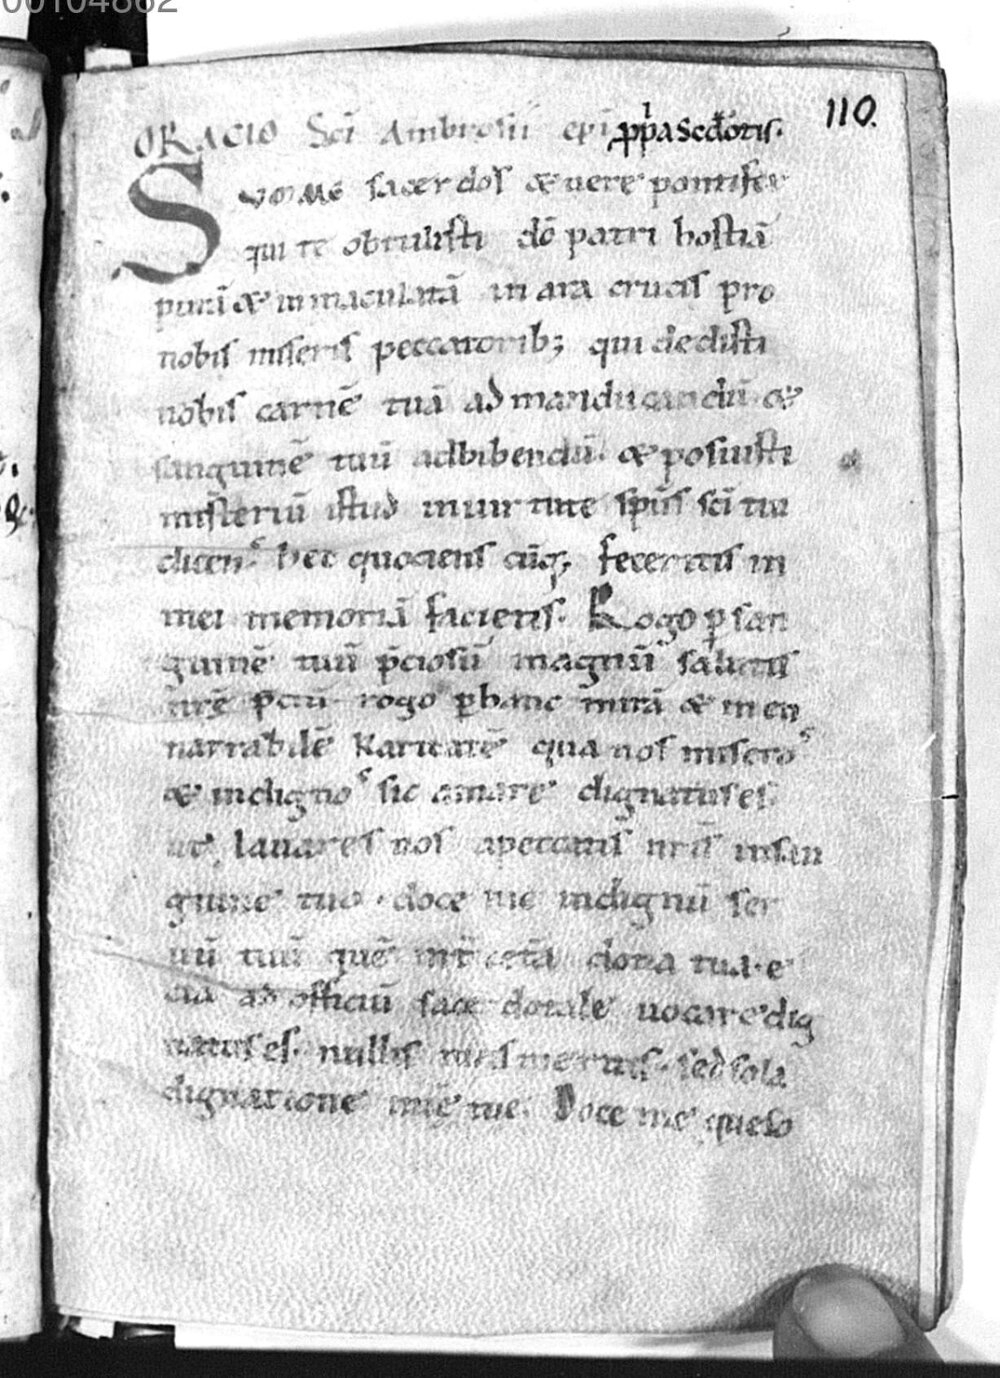 00104862
110.
ORACIO Sc̄i Ambrosii ep̄i
Summe sacerdos & uere pontifex
qui te obtulisti dō patri hostiā
purā & inmaculatā in ara crucis pro
nobis miseris peccatorib; qui dedisti
nobis carnē tuā ad manducandū &
sanguinē tuū adbibendū. & posuisti
misteriū istud inuirtute sp̄us sc̄i tui
dicens. hec quociens cūq; feceritis in
mei memoriā facietis. Rogo p̱ san
guinē tuū p̄ciosū magnū salutis
n̄rē p̄ciū rogo p̱ hanc mirā & inen
narrabilē karitatē qua nos miseros
& indignos sic amare dignatus es.
ut lauares nos apeccatis n̄ris insan
guine tuo. doce me indignū ser
uū tuū quē int̄ cetā dona tua. e
cia ad officiū sacerdotale uocare dig
natus es. nullis meis meritis. sed sola
dignatione mīē tue. Doce me queso